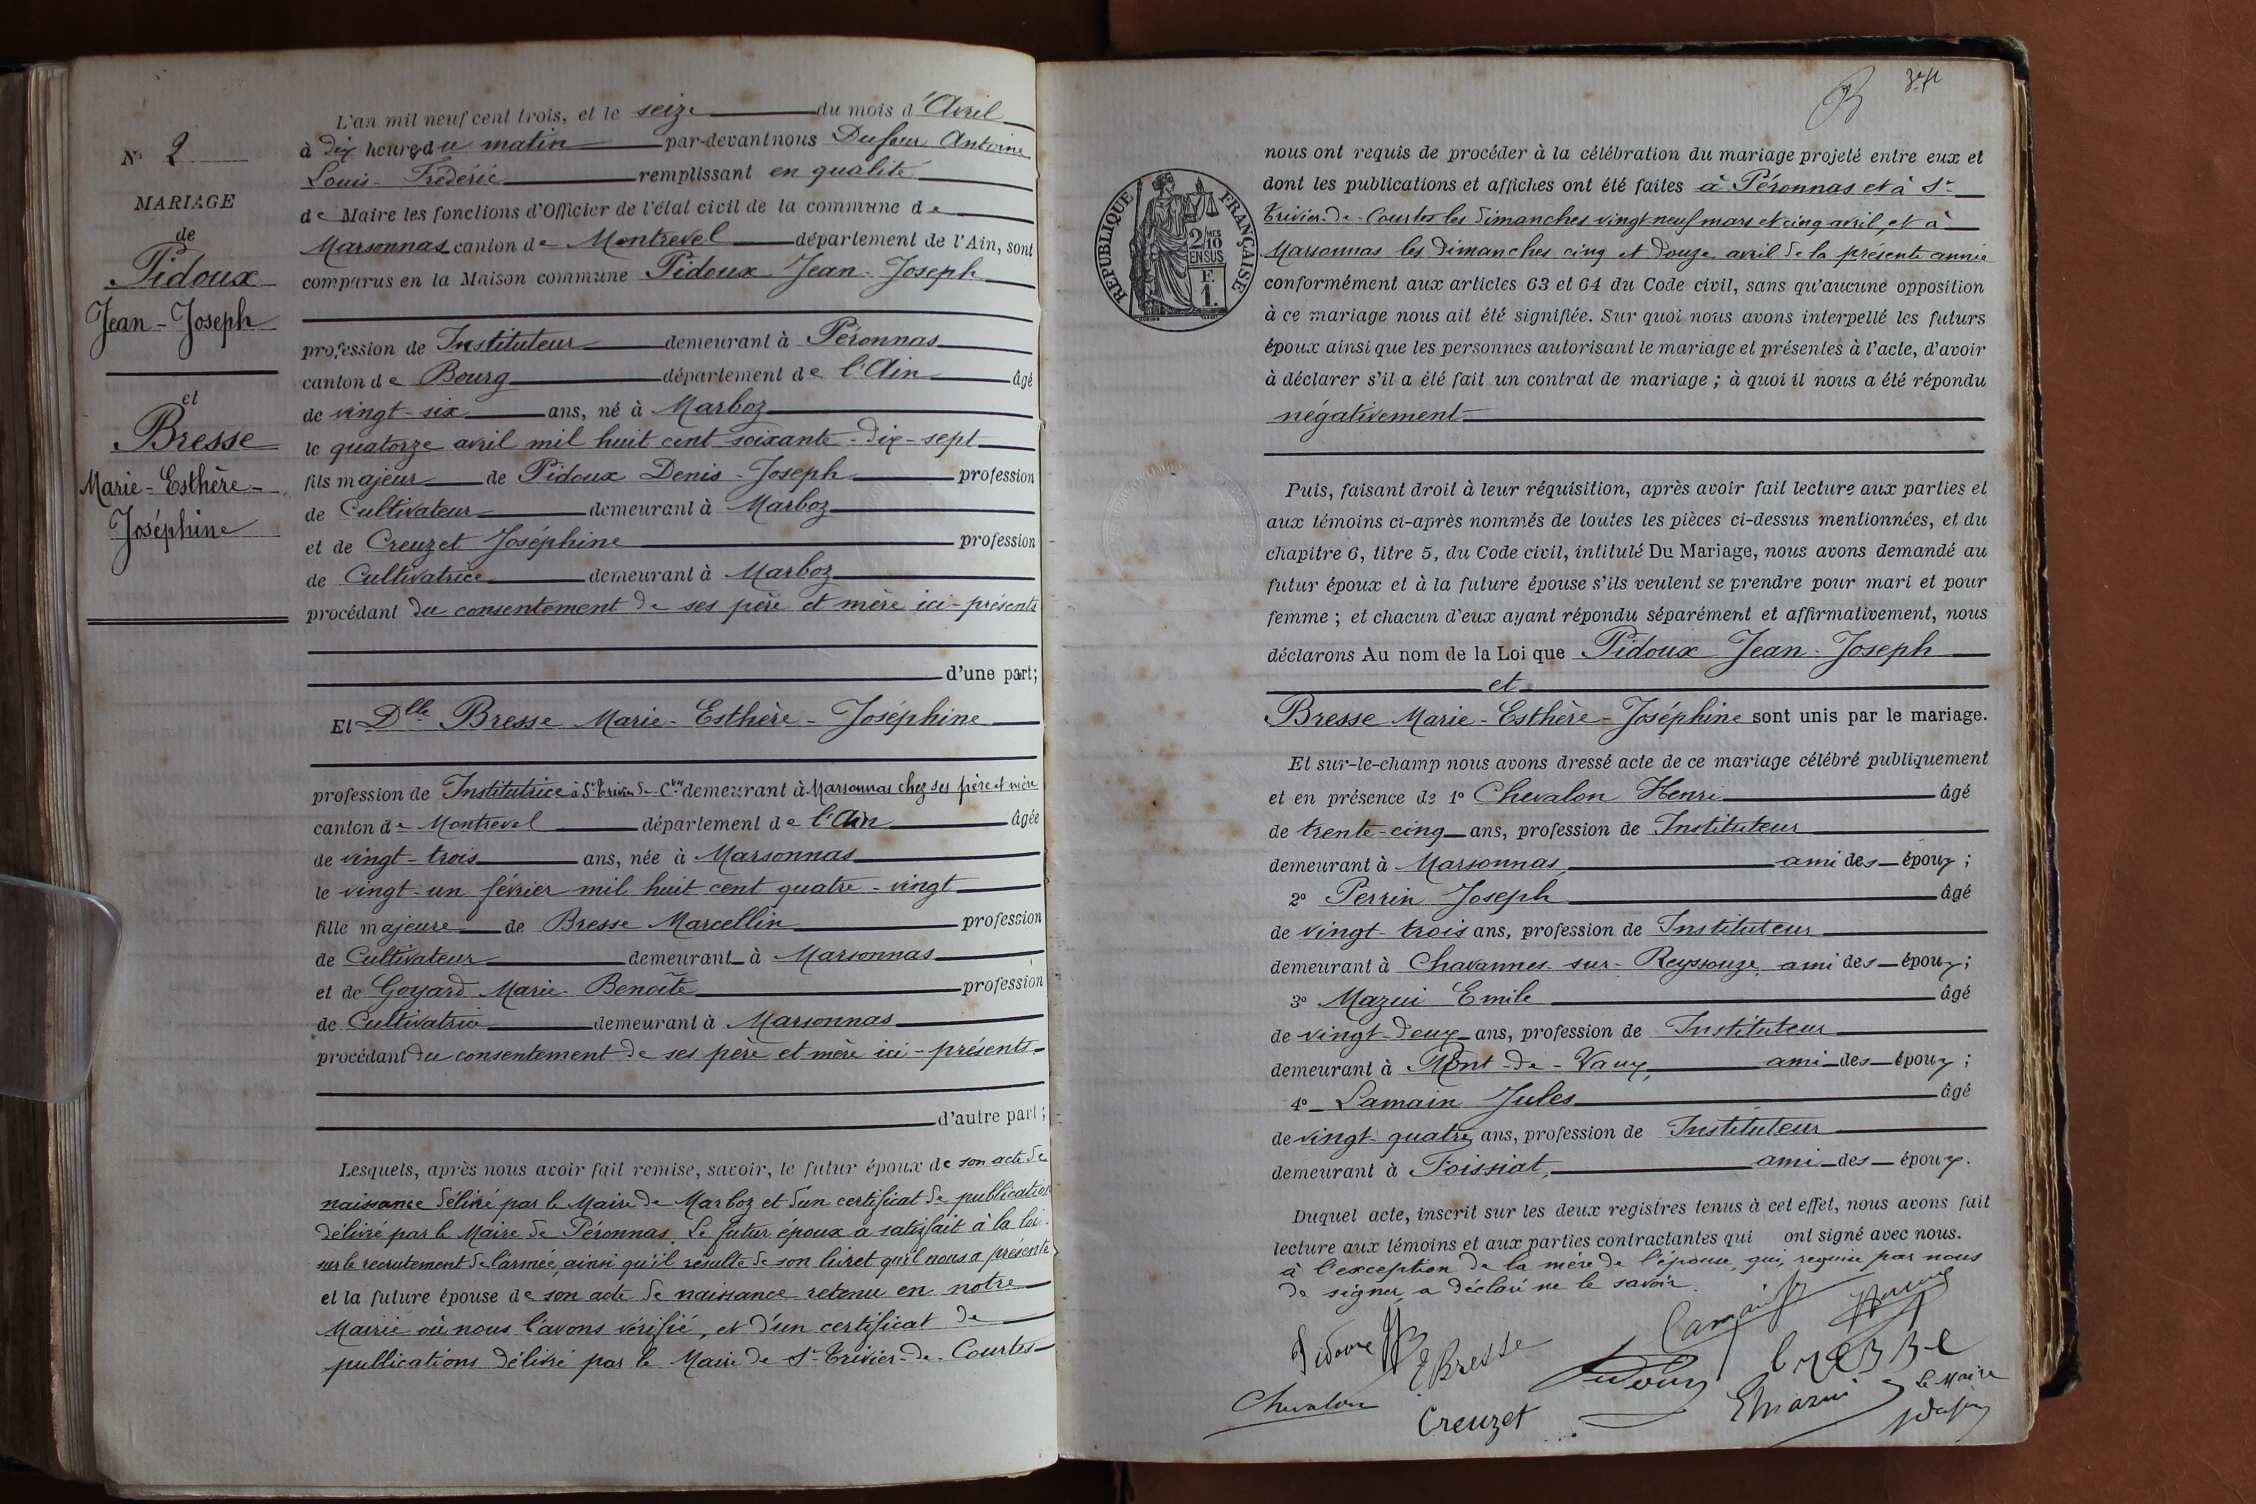 N° 2
MARIAGE
de
Pidoux
Jean-Joseph
et
Bresse
Marie-Esthère-
Joséphine
L'an mil neuf cent trois, et le seize du mois d'Avril
à dix heures du matin par-devant nous Dufour Antoine
Louis-Frédéric remplissant en qualité
de Maire les fonctions d'Officier de l'état civil de la commune de
Marsonnas canton de Montrevel département de l'Ain, sont
comparus en la Maison commune Pidoux Jean-Joseph
profession de Instituteur demeurant à Péronnas
canton de Bourg département de l'Ain âgé
de vingt-six ans, né à Marboz
le quatorze avril mil huit cent soixante-dix-sept
fils majeur de Pidoux Denis-Joseph profession
de Cultivateur demeurant à Marboz
et de Creuzet Joséphine profession
de Cultivatrice demeurant à Marboz
procédant du consentement de ses père et mère ici-présents
d'une part;
Et Dlle Bresse Marie-Esthère-Joséphine
profession de Institutrice à St Trivier-de-Ctes demeurant à Marsonnas chez ses père et mère
canton de Montrevel département de l'Ain âgée
de vingt-trois ans, née à Marsonnas
le vingt-un février mil huit cent quatre-vingt
fille majeure de Bresse Marcellin profession
de Cultivateur demeurant à Marsonnas
et de Goyard Marie-Benoîte profession
de Cultivatrice demeurant à Marsonnas
procédant du consentement de ses père et mère ici-présents
d'autre part;
Lesquels, après nous avoir fait remise, savoir, le futur époux de son acte de
naissance délivré par le Maire de Marboz et d'un certificat de publication
délivré par le Maire de Péronnas. Le futur époux a satisfait à la loi
sur le recrutement de l'armée, ainsi qu'il résulte de son livret qu'il nous a présenté
et la future épouse de son acte de naissance retenu en notre
Mairie où nous l'avons vérifié, et d'un certificat de
publications délivré par le Maire de St-Trivier-de-Courtes
RÉPUBLIQUE FRANÇAISE
2/10 MES
EN SUS
F.
1.
nous ont requis de procéder à la célébration du mariage projeté entre eux et
dont les publications et affiches ont été faites à Péronnas et à St-
Trivier-de-Courtes les dimanches vingt-neuf mars et cinq avril, et à
Marsonnas les dimanches cinq et douze avril de la présente année
conformément aux articles 63 et 64 du Code civil, sans qu'aucune opposition
à ce mariage nous ait été signifiée. Sur quoi nous avons interpellé les futurs
époux ainsi que les personnes autorisant le mariage et présentes à l'acte, d'avoir
à déclarer s'il a été fait un contrat de mariage ; à quoi il nous a été répondu
négativement
Puis, faisant droit à leur réquisition, après avoir fait lecture aux parties et
aux témoins ci-après nommés de toutes les pièces ci-dessus mentionnées, et du
chapitre 6, titre 5, du Code civil, intitulé Du Mariage, nous avons demandé au
futur époux et à la future épouse s'ils veulent se prendre pour mari et pour
femme ; et chacun d'eux ayant répondu séparément et affirmativement, nous
déclarons Au nom de la Loi que Pidoux Jean-Joseph
et
Bresse Marie-Esthère-Joséphine sont unis par le mariage.
Et sur-le-champ nous avons dressé acte de ce mariage célébré publiquement
et en présence de 1° Chevalon Henri âgé
de trente-cinq ans, profession de Instituteur
demeurant à Marsonnas, ami des époux ;
2° Perrin Joseph âgé
de vingt-trois ans, profession de Instituteur
demeurant à Chavannes-sur-Reyssouze, ami des époux ;
3° Mazui Emile âgé
de vingt-deux ans, profession de Instituteur
demeurant à Pont-de-Vaux, ami des époux ;
4° Lamain Jules âgé
de vingt-quatre ans, profession de Instituteur
demeurant à Foissiat, ami des époux.
Duquel acte, inscrit sur les deux registres tenus à cet effet, nous avons fait
lecture aux témoins et aux parties contractantes qui ont signé avec nous.
à l'exception de la mère de l'épouse, qui, requise par nous
de signer, a déclaré ne le savoir.
Lamain
Pidoux
E Bresse
Pidoux
bresse
Chevalon
Creuzet
E Mazui
Le Maire